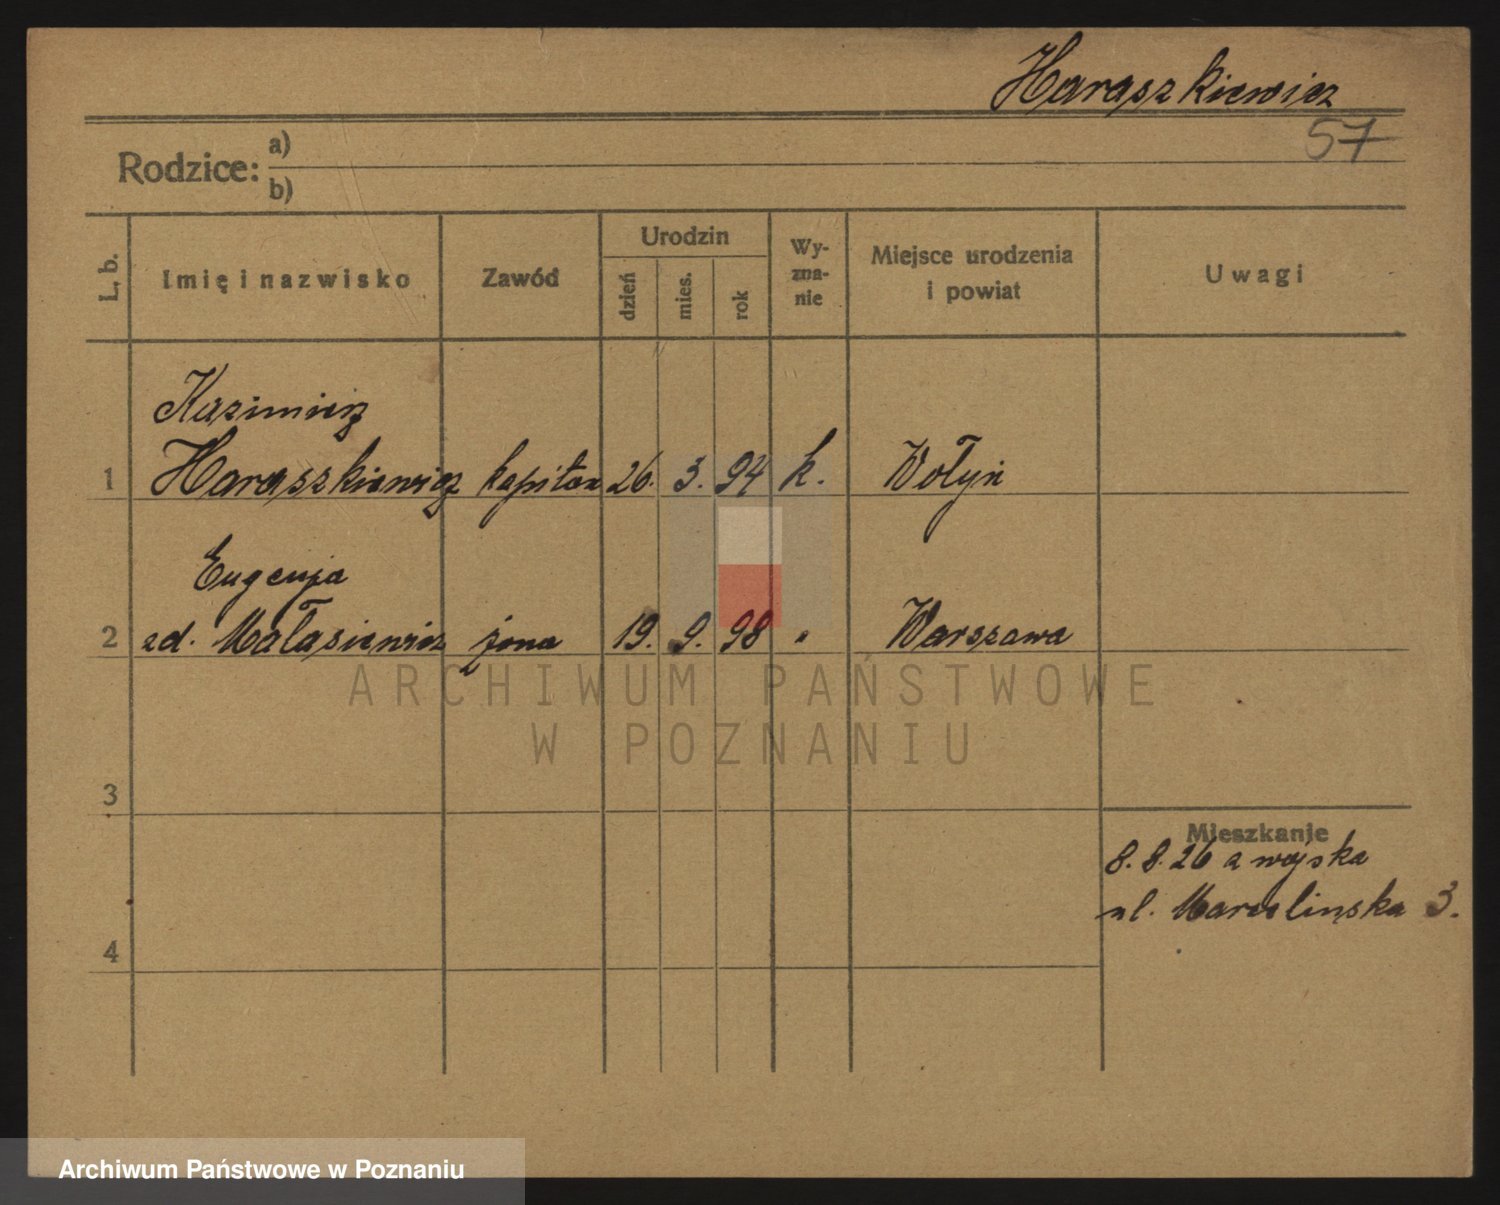 Haraszkiewicz
57
Rodzice:
a)
b)
L. b.
Imię i nazwisko
Zawód
Urodzin
dzień
mies.
rok
Wy-
zna-
nie
Miejsce urodzenia
i powiat
Uwagi
Kazimierz
1 Haraszkiewicz kapitan 26. 3. 94 k. Wołyń
Eugenja
2 zd. Małasiewicz żona 19. 9. 98 " Warszawa
ARCHIWUM PAŃSTWOWE
W POZNANIU
3
Mieszkanie
8. 8. 26 z wojska
ul. Marcelińska 3.
4
Archiwum Państwowe w Poznaniu